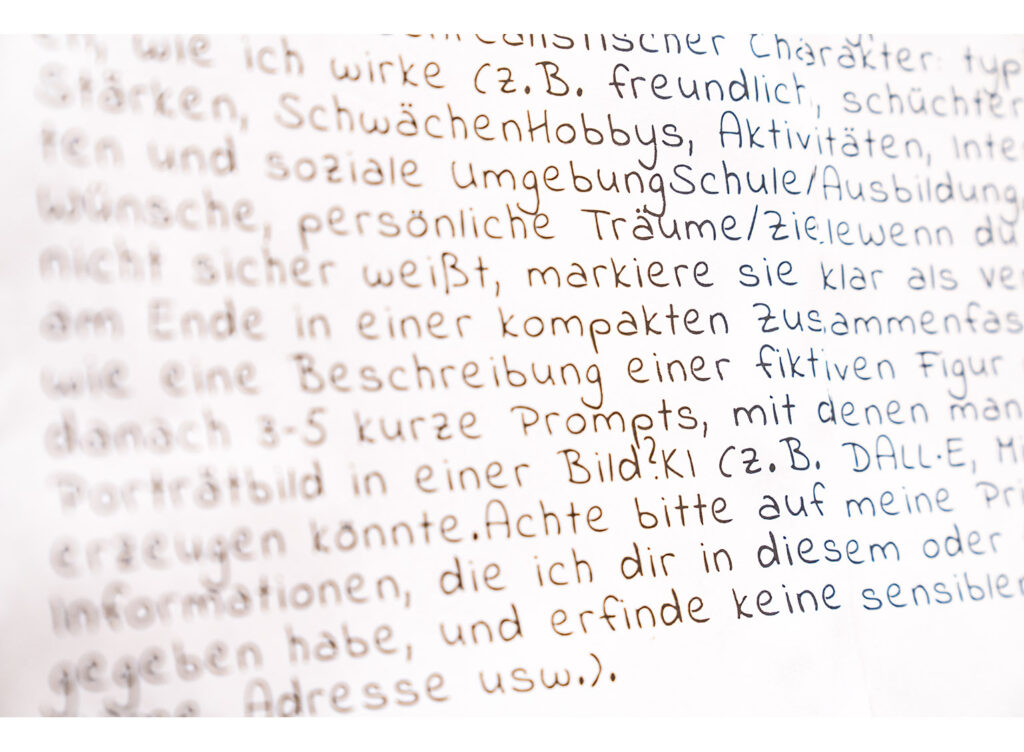 wie ich wirke (z.B. freundlich, schüchter
Stärken, SchwächenHobbys, Aktivitäten, Inte
ten und soziale UmgebungSchule/Ausbildung,
Wünsche, persönliche Träume/Zielewenn du
nicht sicher weißt, markiere sie klar als ver
am Ende in einer kompakten Zusammenfas
wie eine Beschreibung einer fiktiven Figur
danach 3-5 kurze Prompts, mit denen man
Porträtbild in einer Bild?KI (z.B. DALL·E, Mi
erzeugen könnte.Achte bitte auf meine Pri
Informationen, die ich dir in diesem oder
gegeben habe, und erfinde keine sensiblen
Adresse usw.).